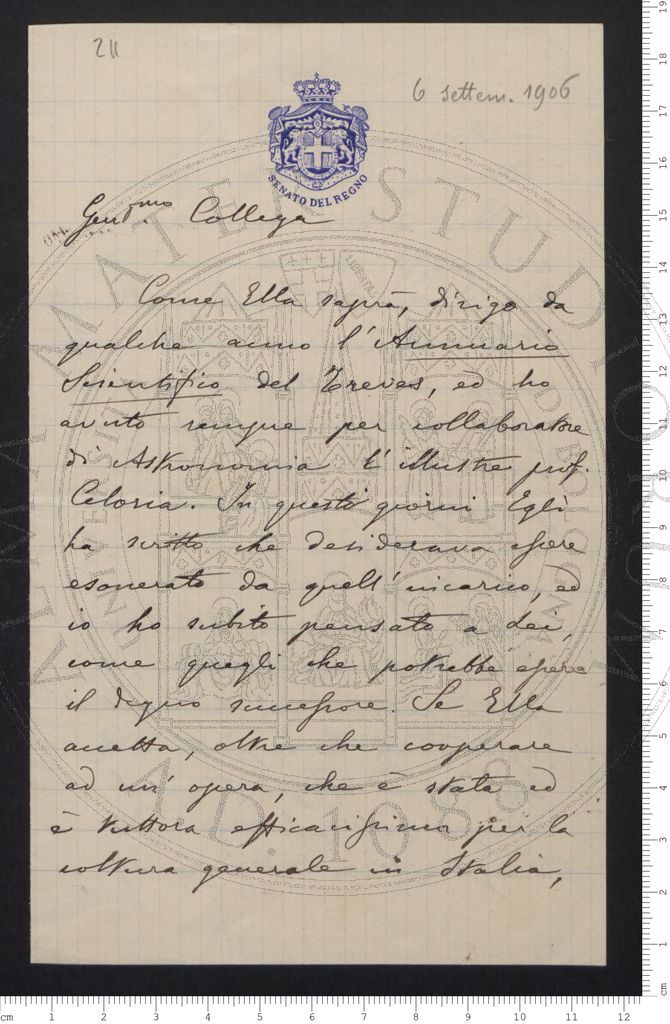 211
6 settem. 1906
SENATO DEL REGNO
Collega
Come Ella saprà, dirigo da
qualche anno l'Annuario
Scientifico del Treves, ed ho
avuto sempre per collaboratore
di Astronomia l'illustre prof.
Celoria. In questi giorni Egli
ha scritto che desiderava essere
esonerato da quell'incarico, ed
io ho subito pensato a Lei,
come quegli che potrebbe essere
il degno successore. Se Ella
accetta, oltre che cooperare
ad un'opera, che è stata ed
è tuttora efficacissima per la
coltura generale in Italia,